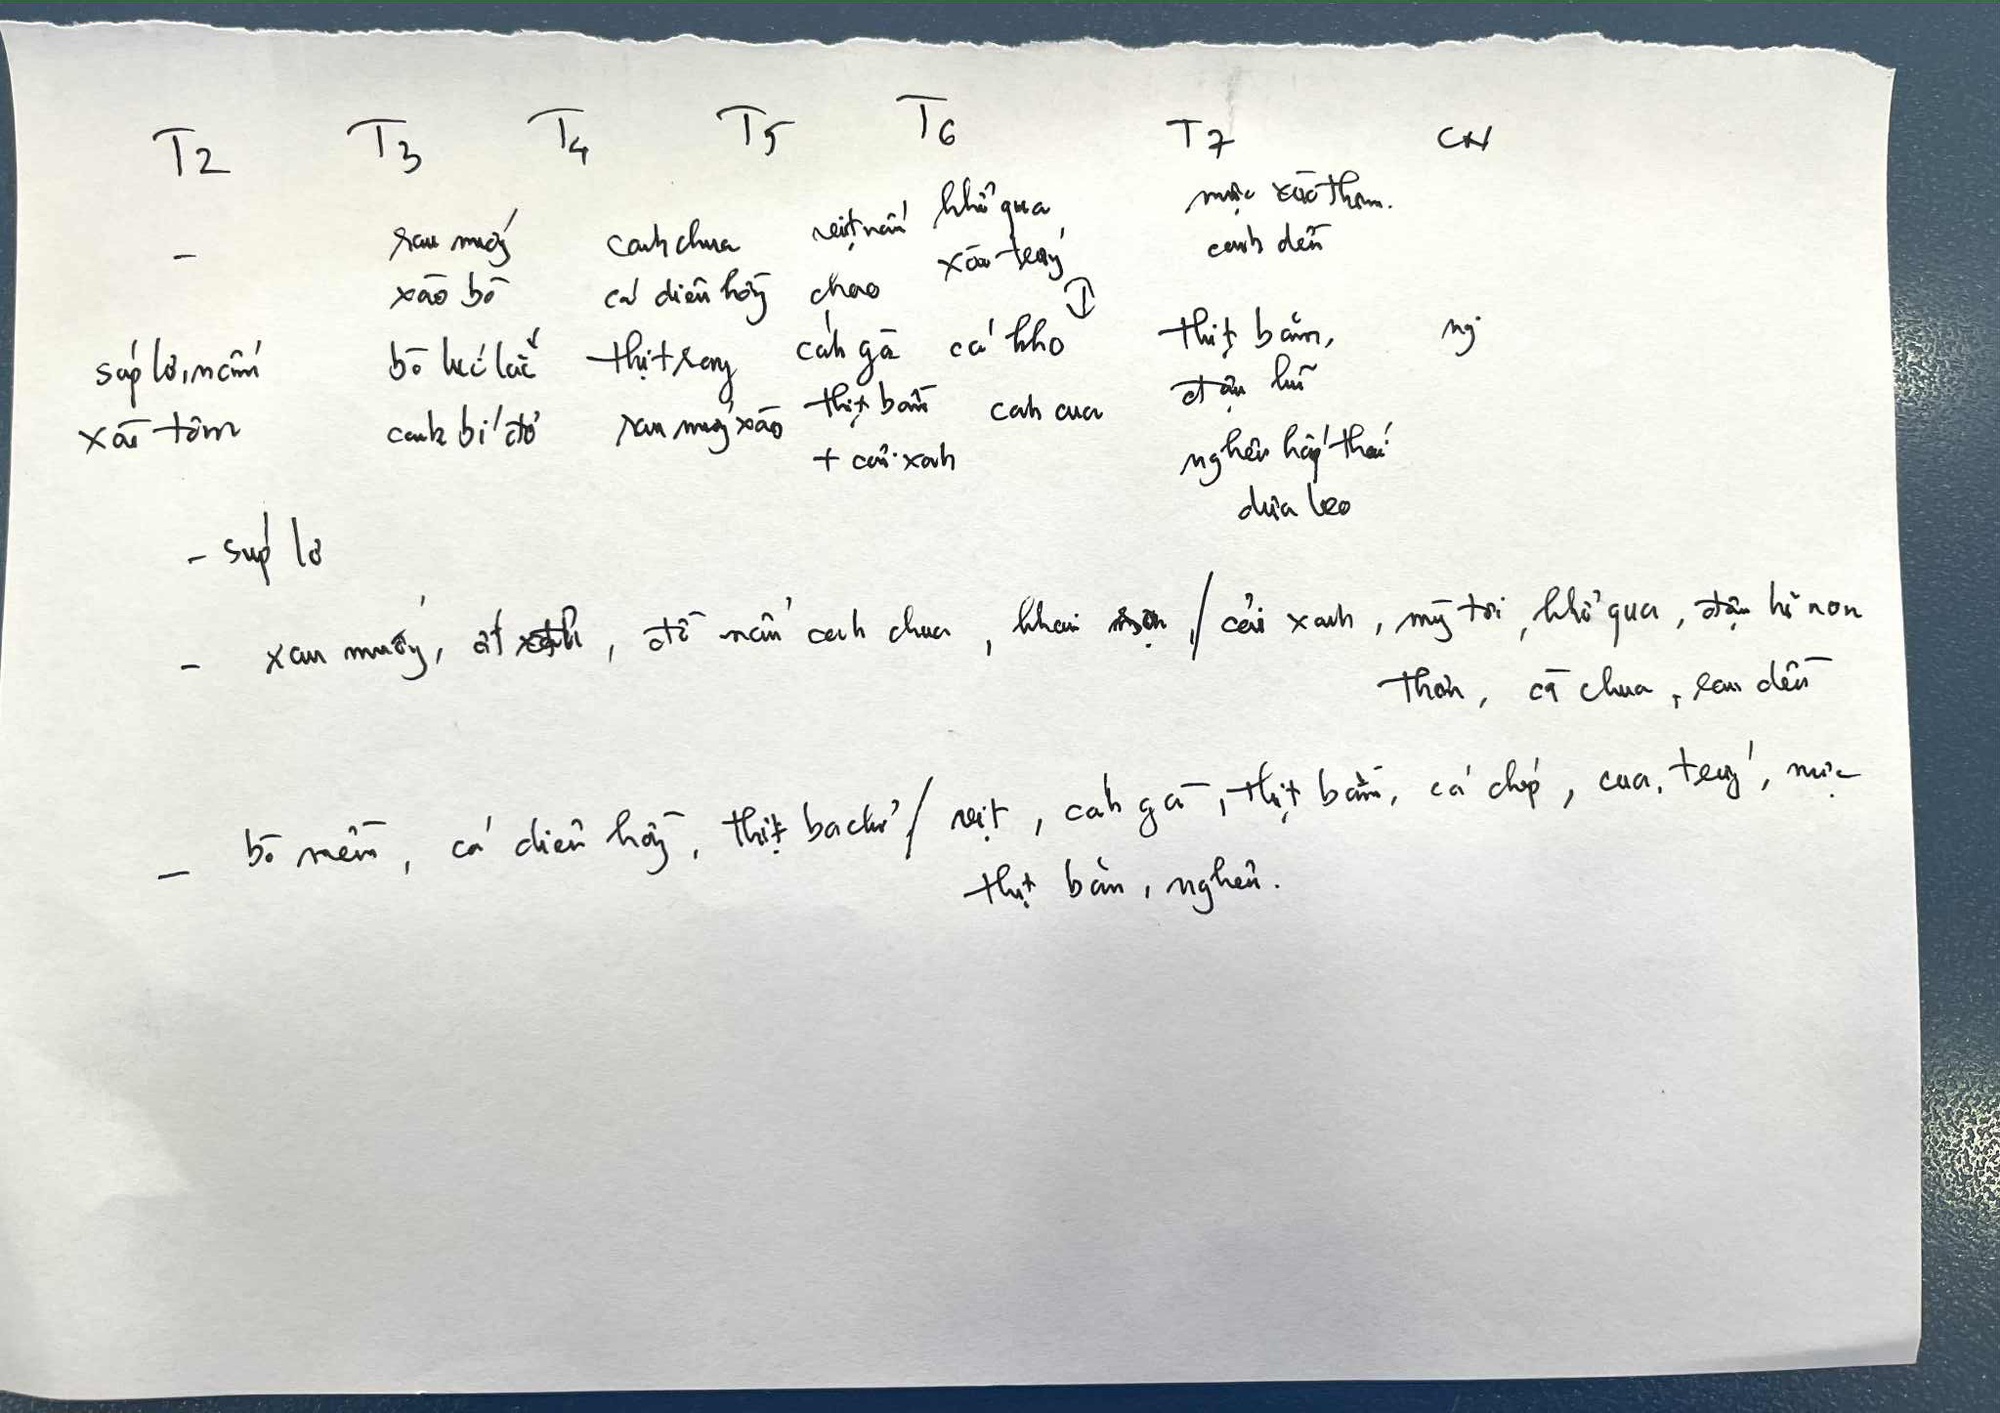 T2 T3 T4 T5 T6 T7 CN
- rau muống canh chua vịt nấu khổ qua mực xào thơm.
xào bò cá diêu hồng chao xào trứng canh dền
súp lơ, nấm bò lúc lắc thịt rang cánh gà cá kho thịt bằm, ng
xào tôm canh bí đỏ rau muống xào thịt bằm canh cua đậu hũ
+ cải xanh nghêu hấp thái
dưa leo
- súp lơ
- rau muống, ớt, đồ nấu canh chua, khoai / cải xanh, mỹ tơi, khổ qua, đậu hũ non
thơm, cà chua, rau dền
- bò mềm, cá diêu hồng, thịt ba chỉ / vịt, cánh gà, thịt bằm, cá chép, cua, trứng, mực
thịt bằm, nghêu.